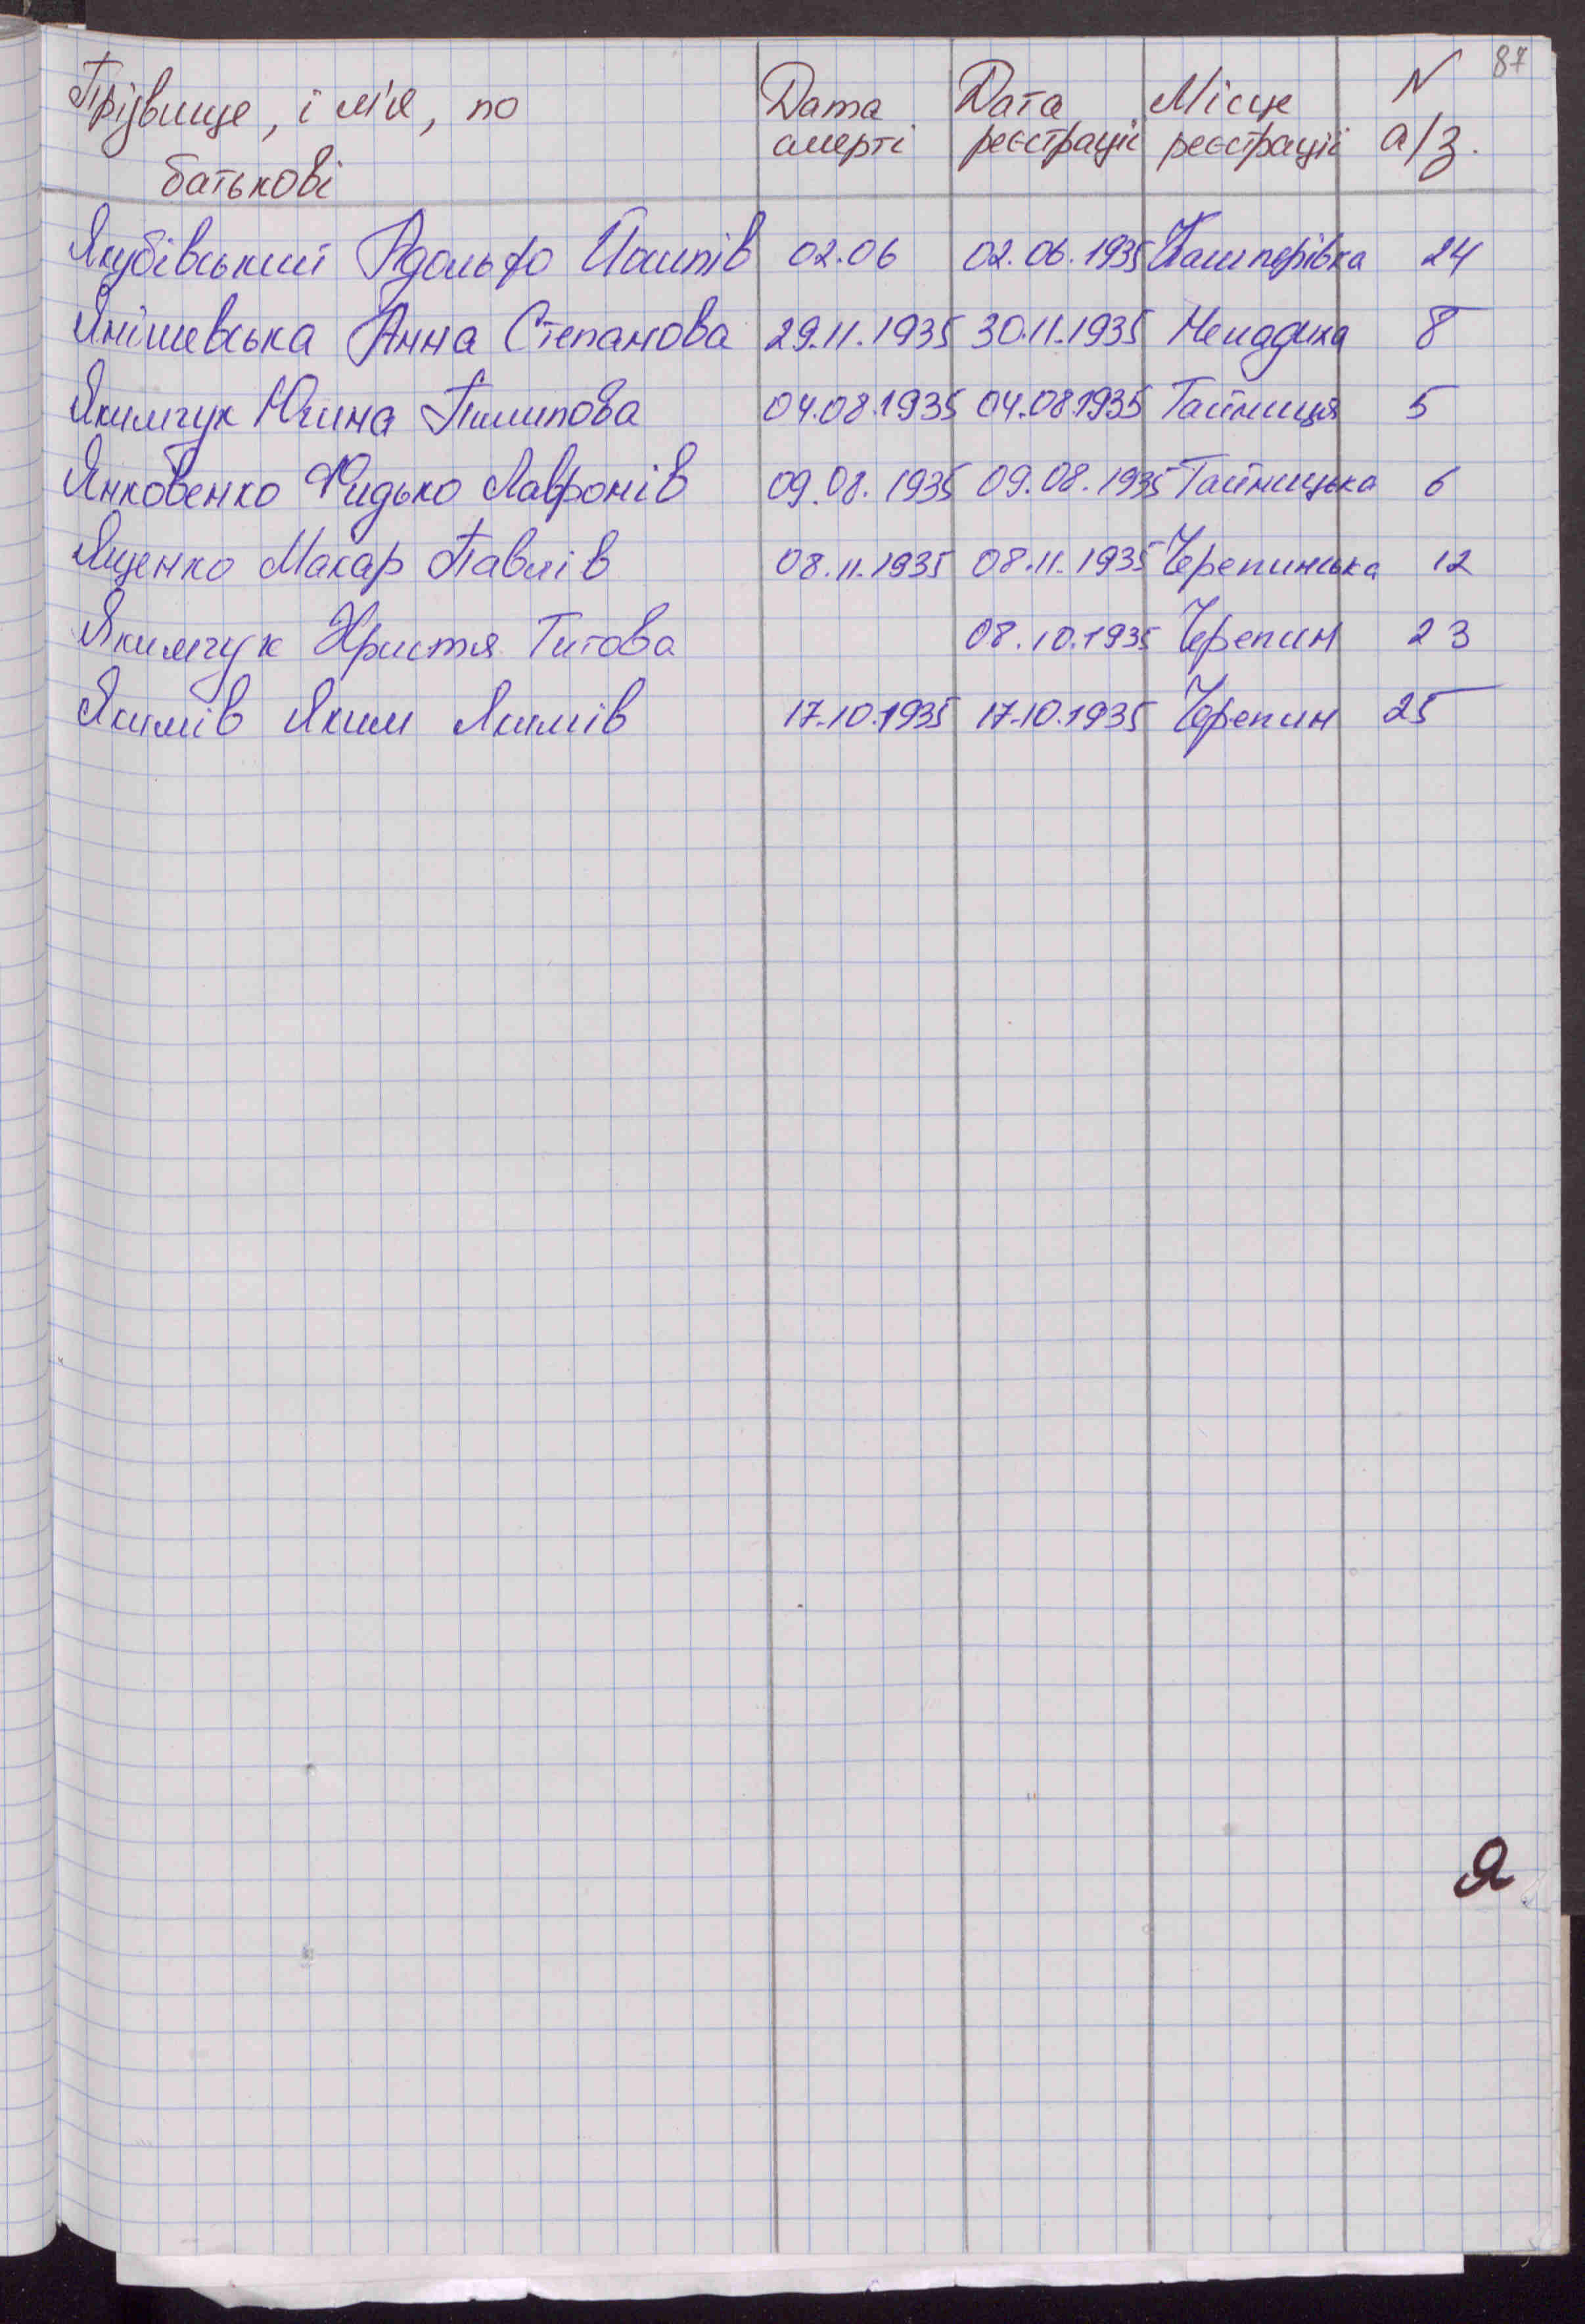 87
Прізвище, і м'я, по батькові Дата смерті Дата реєстрації Місце реєстрації N а/з.
Якубівський Адольф Йосипів 02.06 02.06.1935 Кашперівка 24
Янішевська Анна Степанова 29.11.1935 30.11.1935 8
Якимчук Югина Пилипова 04.08.1935 04.08.1935 Тайниця 5
Янковенко Фидько Лавронів 09.08.1935 09.08.1935 Тайницька 6
Яценко Макар Павлів 08.11.1935 08.11.1935 Черепинська 12
Якимчук Христя Титова 08.10.1935 Черепин 23
Якимів Яким Якимів 17.10.1935 17.10.1935 Черепин 25
Я